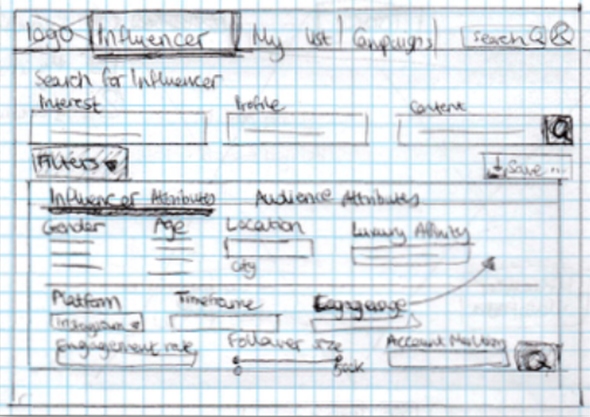 logo Influencer My list Campaigns Search
Search for Influencer
Interest Profile Content
Filters Save ...
Influencer Attributes Audience Attributes
Gender Age Location Luxury Affinity
City
Platform Timeframe Language
Instagram
Engagement rate Follower size Account Mention